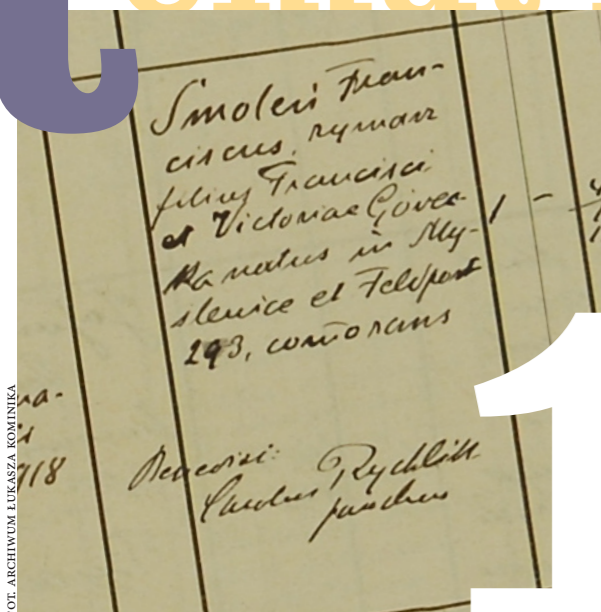 Smoleń Fran-
ciscus, rymarz
filius Francisci
et Victoriae Giver-
ka natus in My-
slenice et Feldpost
293, comorans
1 -
na-
918
Benedixi:
Carolus Rychlik
parochus
OT. ARCHIWUM ŁUKASZA KOMINIKA
1